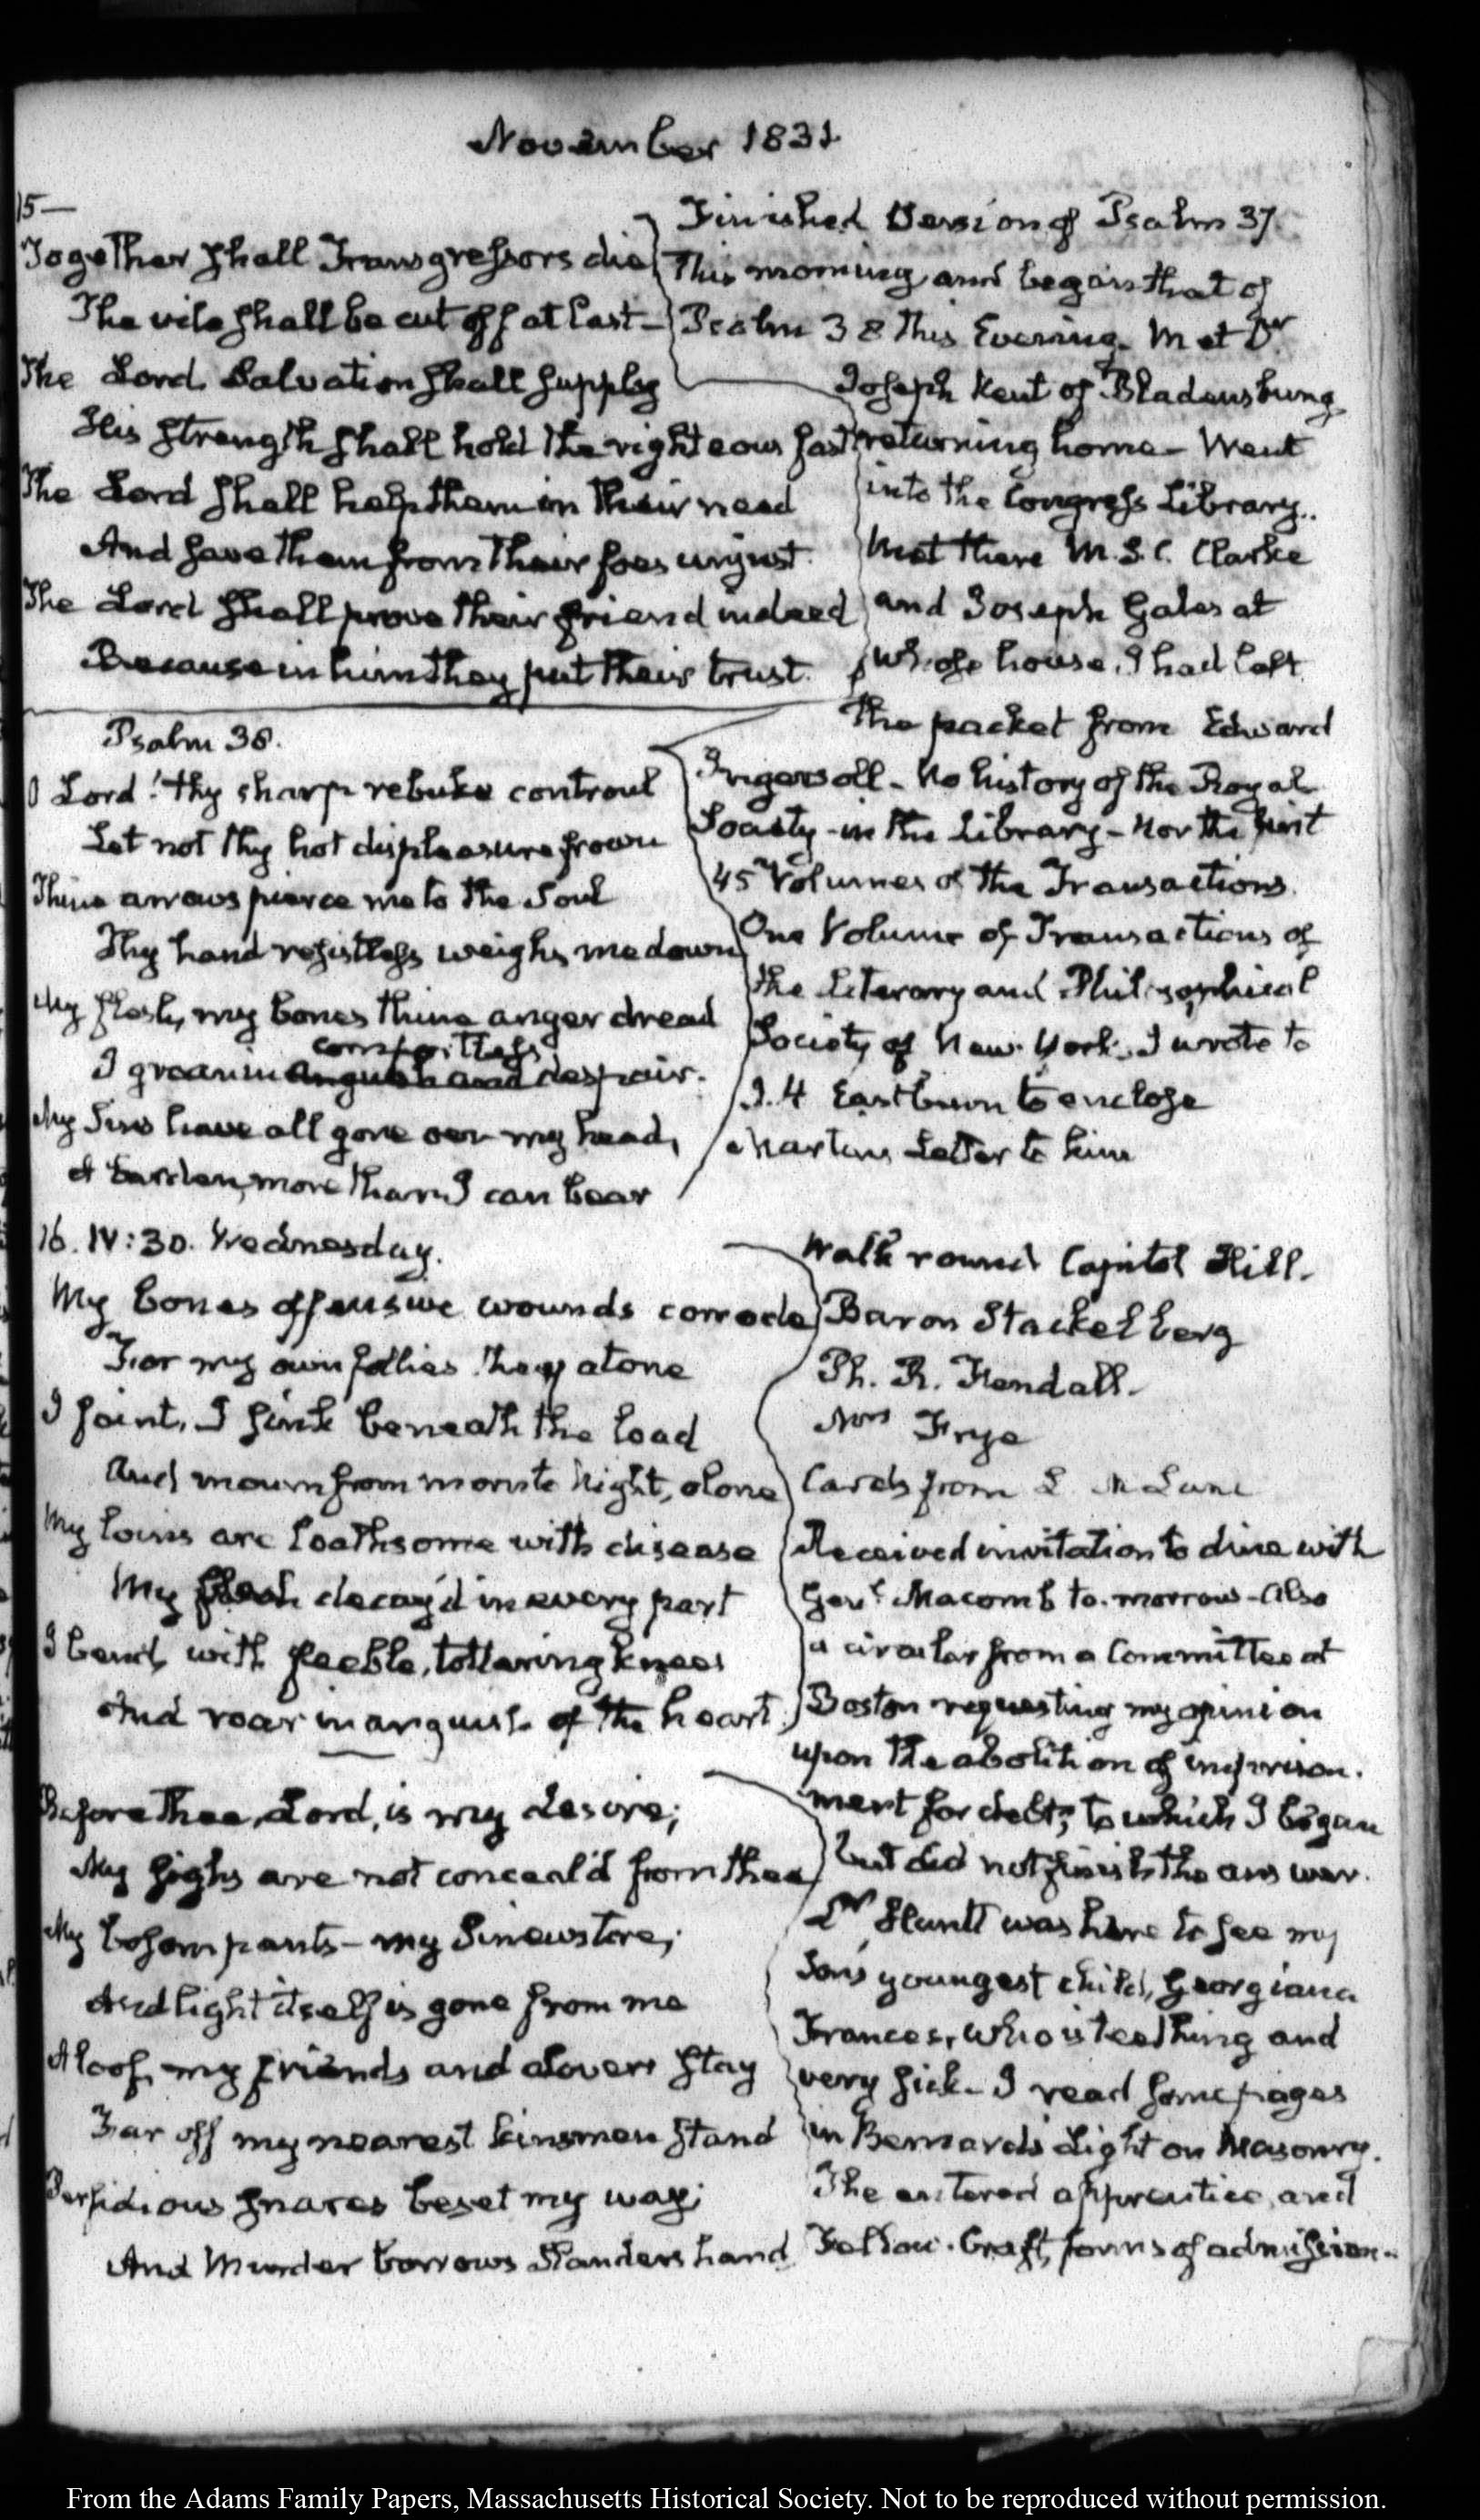 November 1831
15—
Together shall Transgressors die
The vile shall be cut off at last—
The Lord Salvation shall supply
His strength shall hold the righteous fast
The Lord shall help them in their need
And save them from their foes unjust.
The Lord shall prove their friend indeed
Because in him they put their trust.
Finished Version of Psalm 37.
This morning and began that of
Psalm 38 this Evening. Met Dr
Joseph Kent of Bladensburg
returning home— Went
into the Congress Library..
Met there M. S. C. Clarke
and Joseph Gales at
whose house, I had left
the packet from Edward
Ingersoll— No history of the Royal
Society— in the Library— Nor the first
45 Volumes of the Transactions.
One Volume of Transactions of
the Literary and Philosophical
Society of New-York. I wrote to
Eastburn to enclose
Martins Letter to him
Psalm 38.
O Lord! thy sharp rebuke controul
Let not thy hot displeasure frown
Thine arrows pierce me to the Soul
Thy hand resistless weighs me down
My flesh, my bones thine anger dread
comfortless
I groan in anguish and despair.
My Sins have all gone oer my head,
A burden, more than I can bear
16. IV:30. Wednesday.
My bones offensive wounds corrode
For my own follies they atone
I faint, I sink beneath the load
And mourn from morn to Night, alone
My loins are loathsome with disease
My flesh decay'd in every part
I bend with feeble, tottering knees
And roar in anguish of the heart.
Before Thee, Lord, is my desire;
My sighs are not conceal'd from thee
My bosom pants— my Sinews tire;
And light itself is gone from me
Aloof, my friends and lovers stay
Far off my nearest kinsmen stand
Perfidious snares beset my way;
And Murder borrows Slanders hand
Walk round Capitol Hill.
Baron Stackelberg
Ph. R. Fendall.
Mrs Frye
Cards from L. McLane
Received invitation to dine with
Genl. Macomb to-morrow— Also
a circular from a Committee at
Boston requesting my opinion
upon the abolition of imprison-
ment for debt; to which I began
but did not finish the answer.
Dr Huntt was here to see my
Son's youngest child, Georgiana
Frances, who is teething and
very sick— I read some pages
in Bernard's Light on Masonry.
The entered apprentice, and
Fellow-Craft, forms of admission.
From the Adams Family Papers, Massachusetts Historical Society. Not to be reproduced without permission.